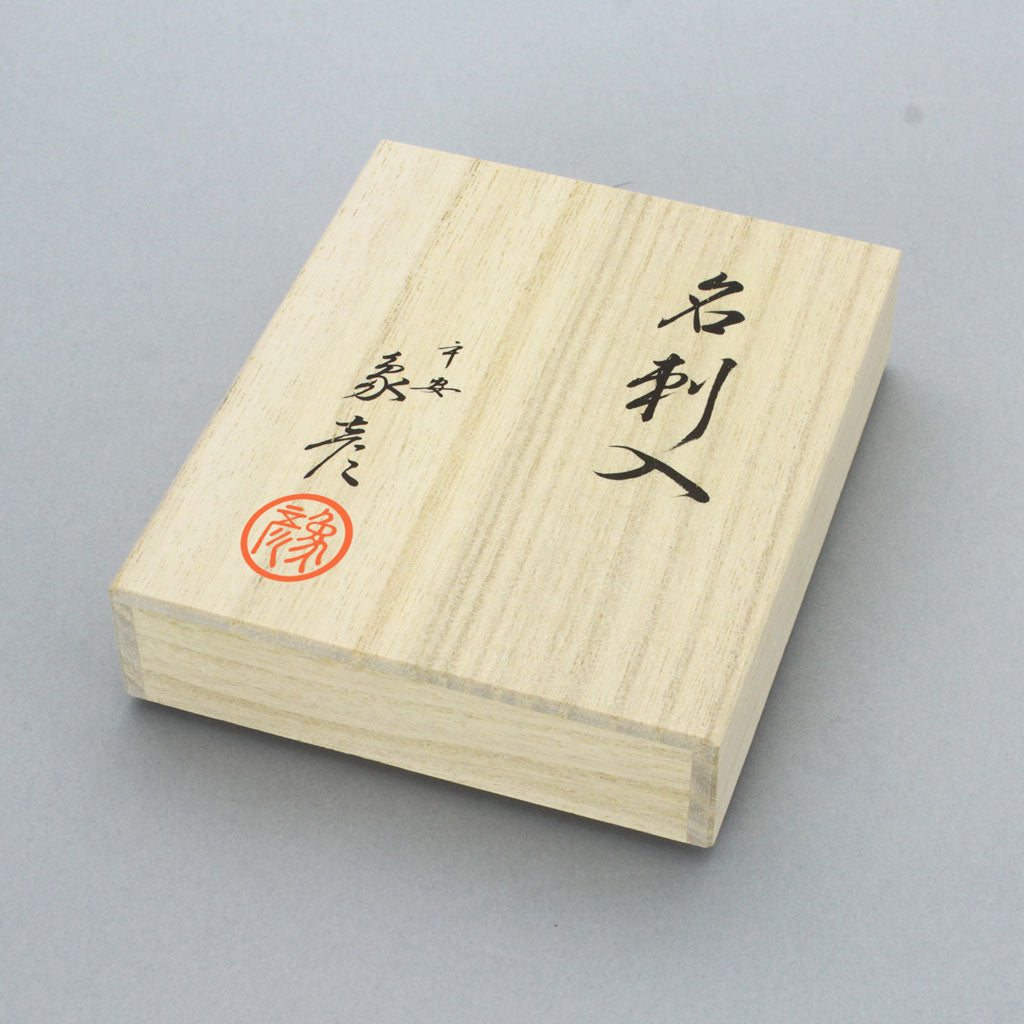 名刺入
平安
象彦